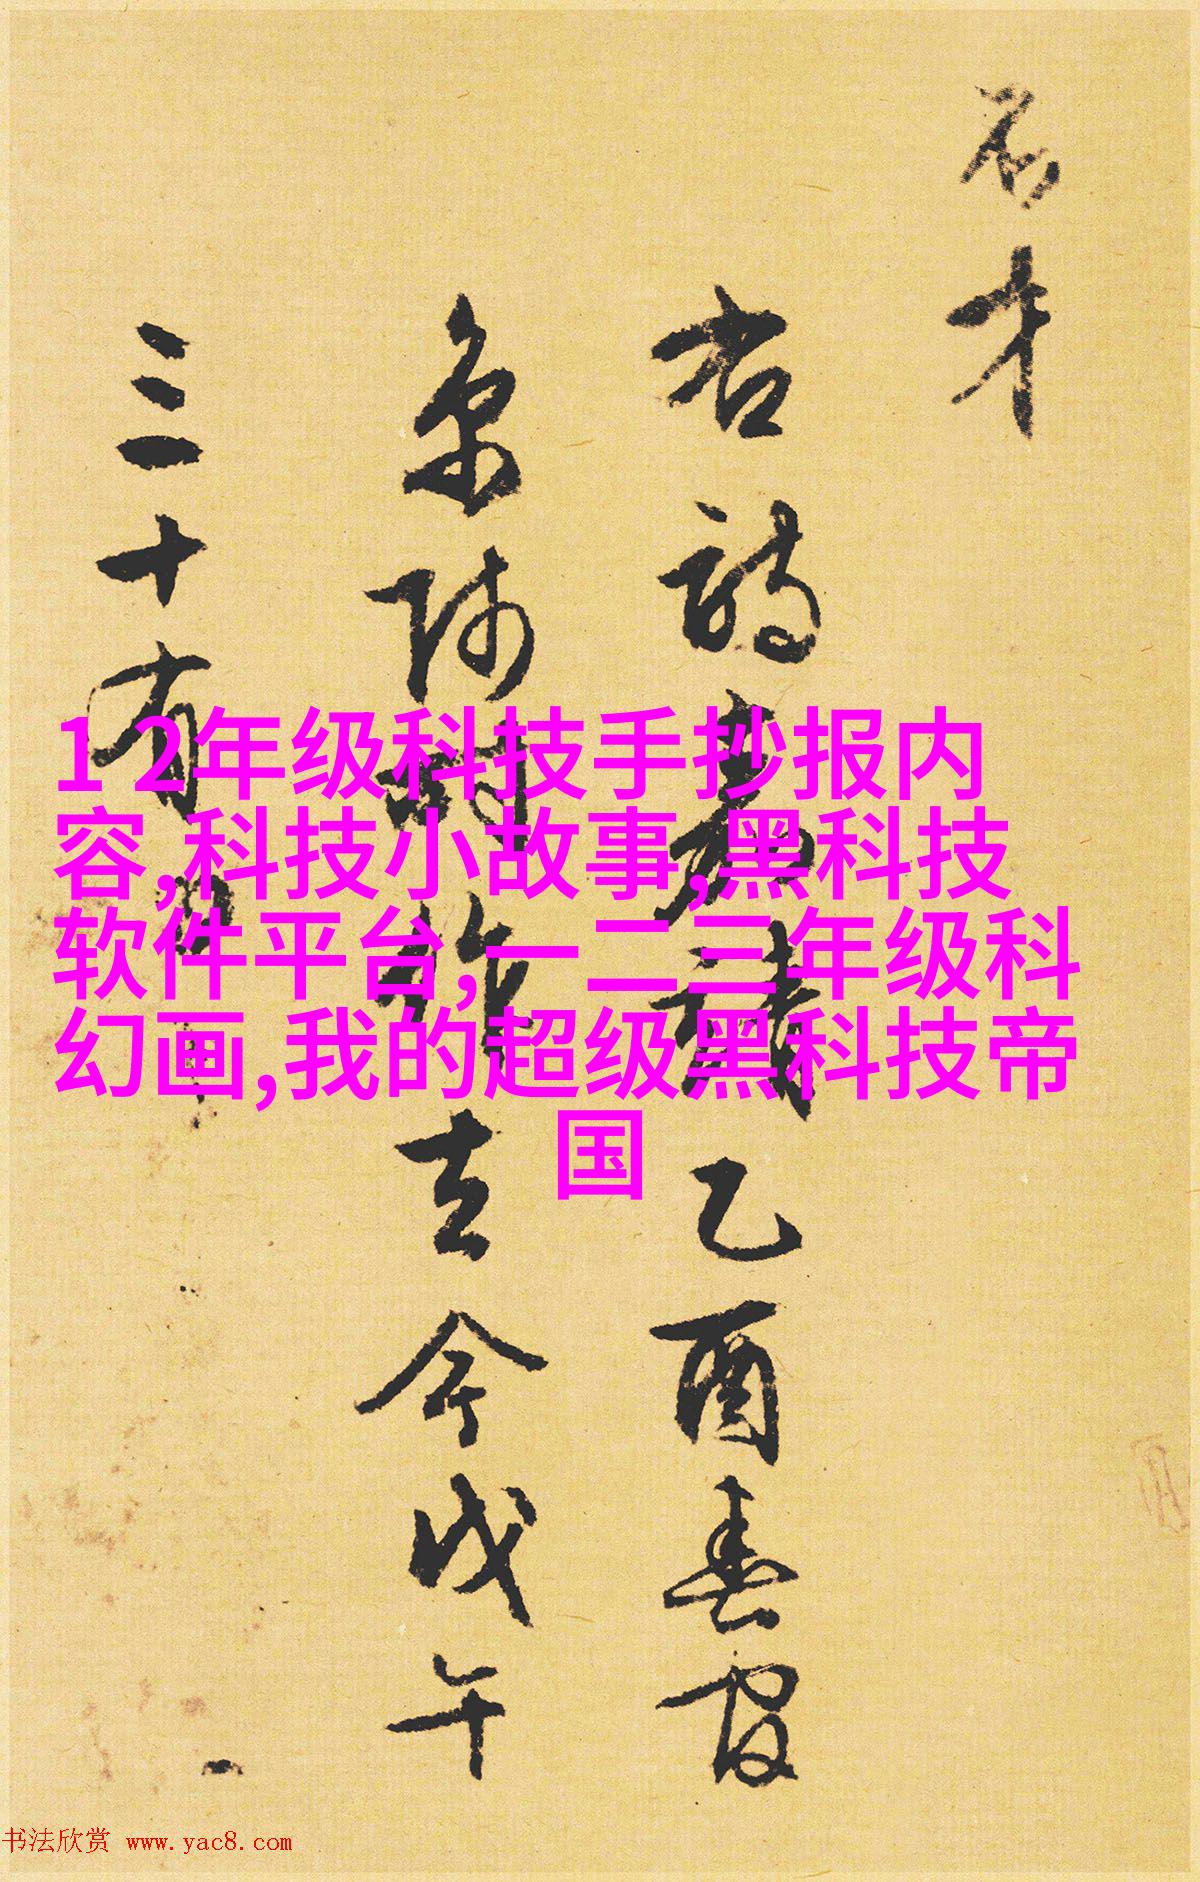 才
右詩嘉靖乙酉春寓
京師時作去今戊午
三十有
1 2年级科技手抄报内
容,科技小故事,黑科技
软件平台,一二三年级科
幻画,我的超级黑科技帝
国
书法欣赏 www.yac8.com